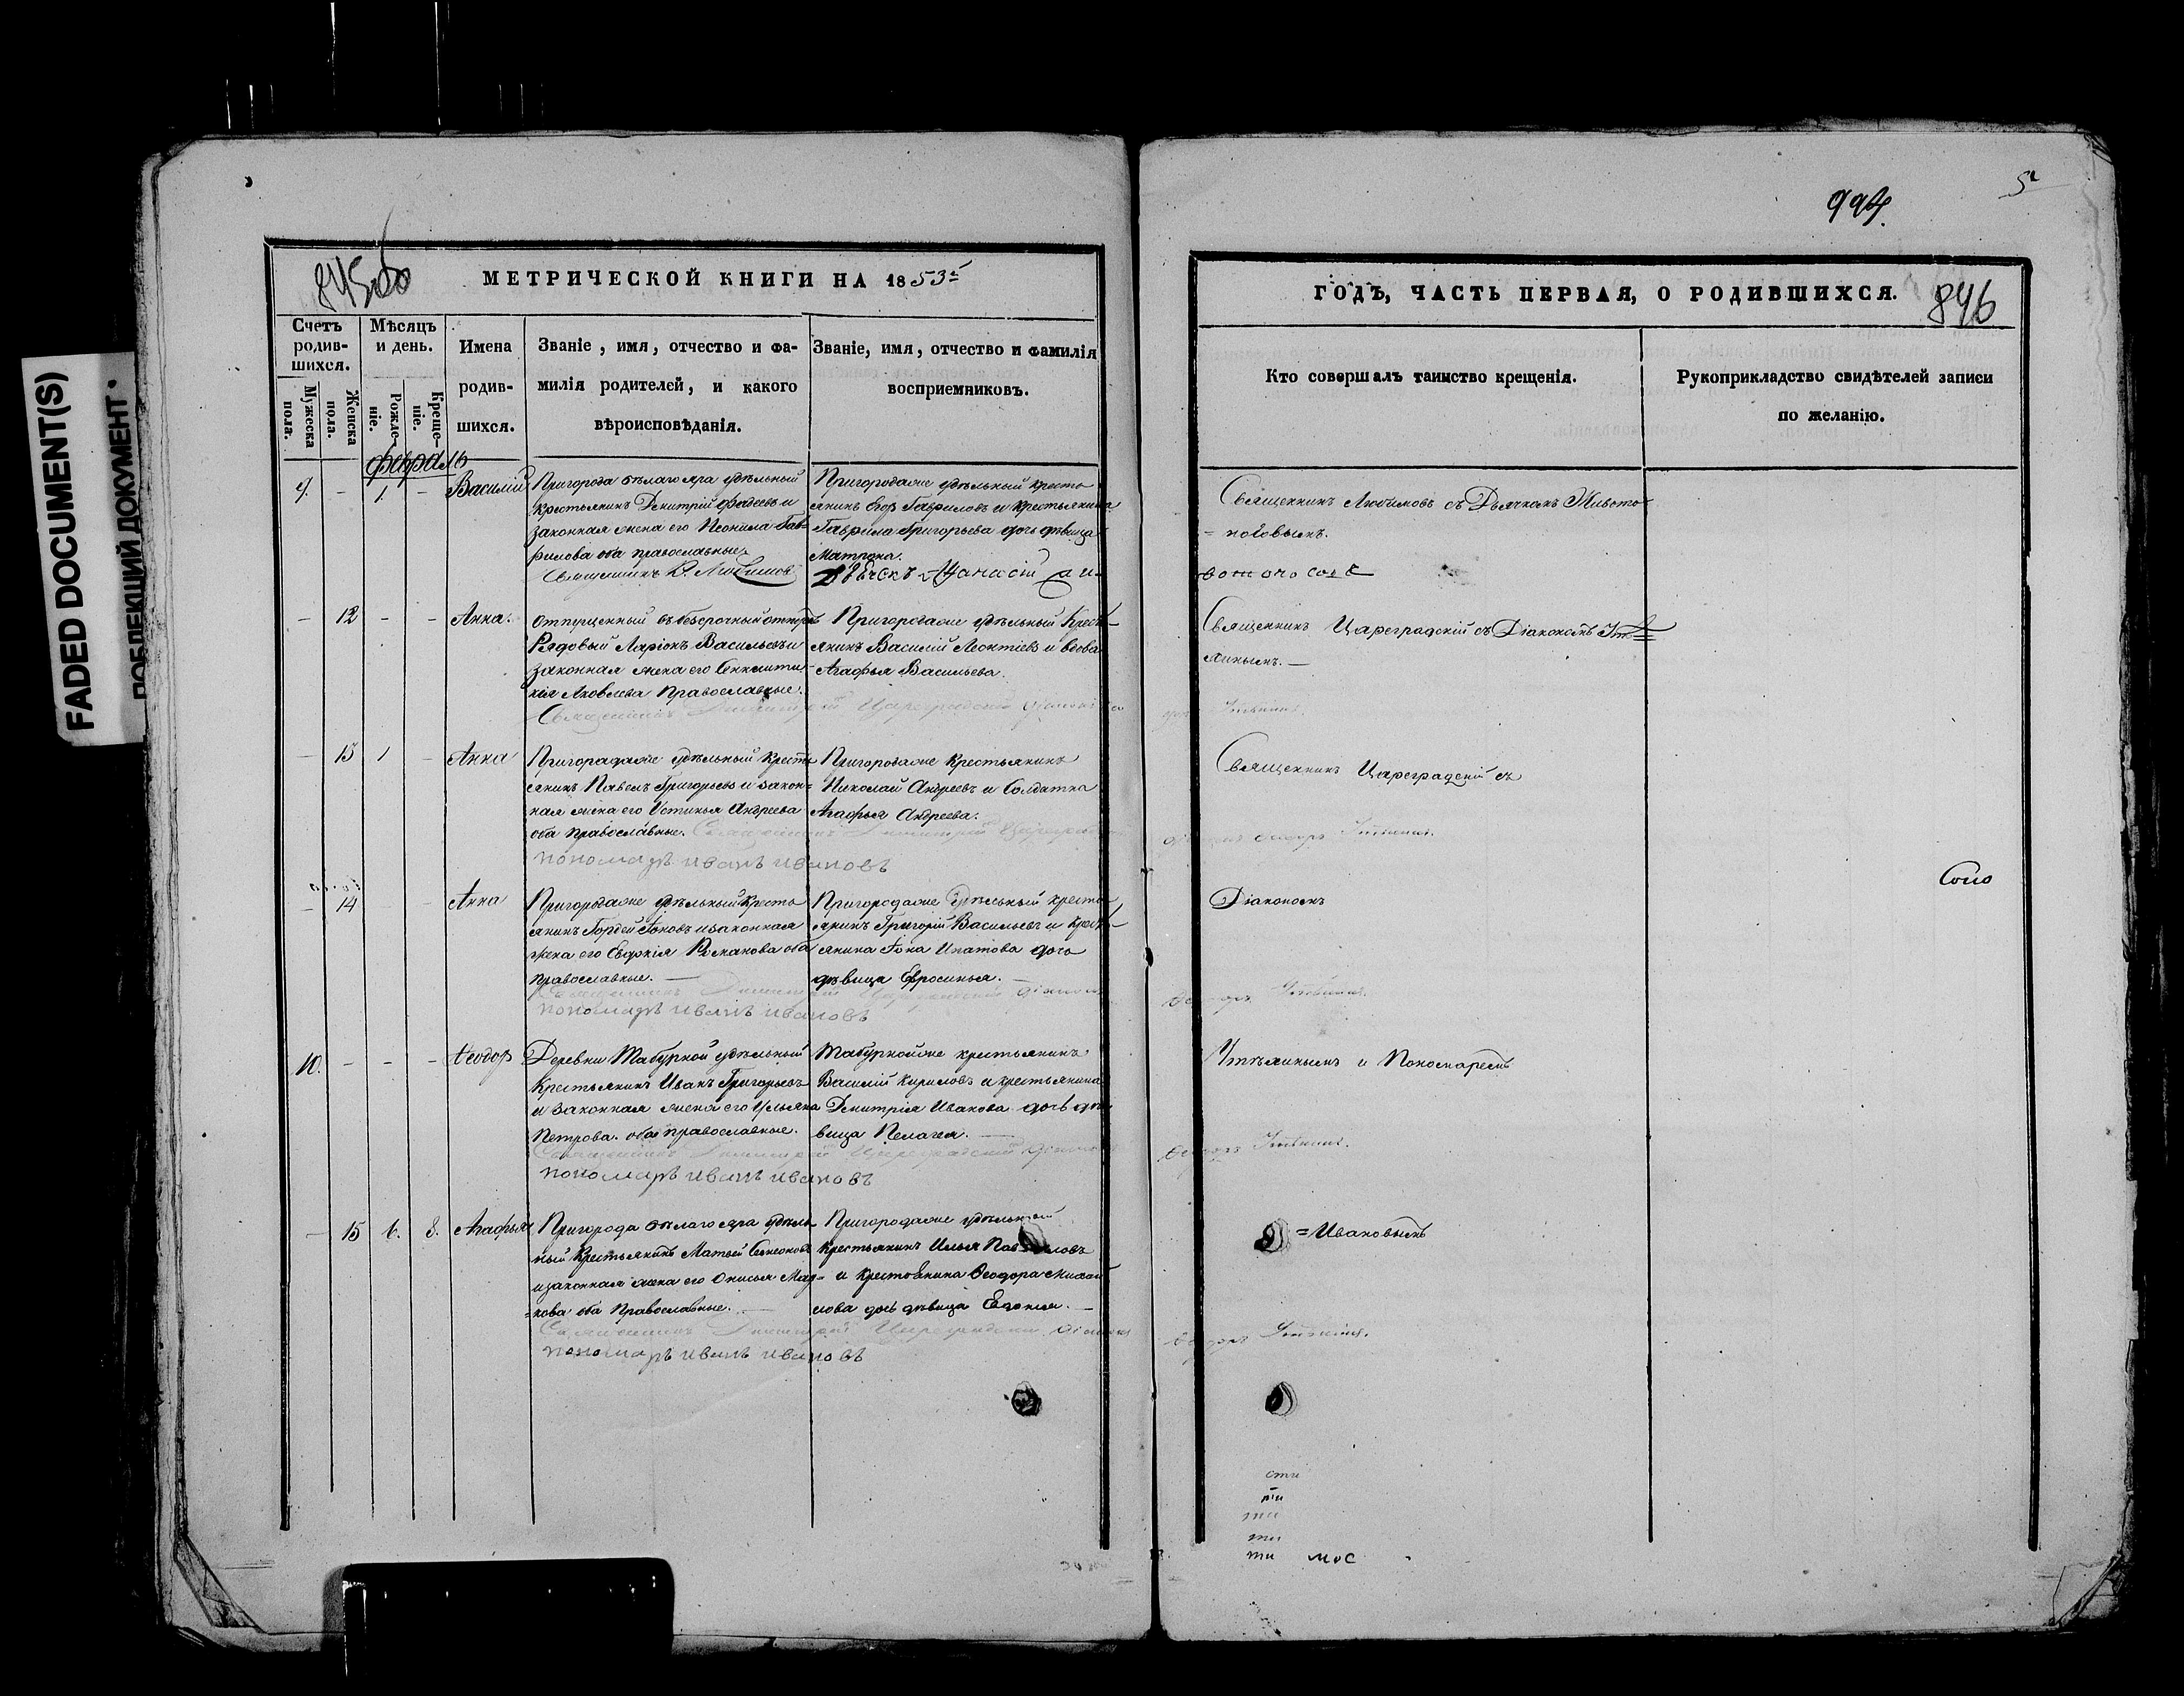 FADED DOCUMENT(S)
ПОБЛЕКШИЙ ДОКУМЕНТ
845об
МЕТРИЧЕСКОЙ КНИГИ НА 1853й
Счетъ родив-шихся.
Мѣсяцъ и день.
Имена родив-шихся.
Званіе, имя, отчество и фа-
милія родителей, и какого
вѣроисповѣданія.
Званіе, имя, отчество и фамилія
восприемниковъ.
Мужеска пола.
Женска пола.
Рожде-ніе.
Креще-ніе.
Февраль
9. - 1. - Василій
Пригорода бѣлаго яра удѣльный
крестьянинъ Дмитрій Фадеевъ и
законная жена его Неонила Гав-
рилова оба православные
Священникъ Любимовъ
Пригородаже удѣльный кресть
янинъ Егор Гавриловъ и крестьянина
Гаврила Григорьева дочь дѣвица
Матрона.
- 12 - - Анна.
Отпущенный въ безсрочный отпускъ
Рядовый Ларіонъ Васильевъ и
законная жена его
Яковлева Православные.
Священникъ Дмитрій Цареградскій
Пригородаже удѣльный Кресть-
янинъ Василій Леонтіевъ и вдова
Агафья Васильева.
- 13 1 - Анна
Пригородаже удѣльный кресть
янинъ Павелъ Григорьевъ и закон-
ная жена его Устинья Андреева
оба православные. Священникъ Дмитрій
пономарь иванъ ивановъ
Пригородаже крестьянинъ
Николай Андреевъ и Солдатка
Агафья Андреева.
- 14 - Анна
Пригородаже удѣльный кресть
янинъ Гордей Іоновъ и законная
жена его Евдокія Романова оба
православные.
Священникъ Дмитрій Цареградскій
пономарь иванъ ивановъ
Пригородаже Удѣльный кресть
янинъ Григорій Васильевъ и кресть-
янина Іона Ипатова дочь
дѣвица Евросинья.
10. - - - Ѳеодор
Деревни Табурной удѣльный
Крестьянинъ Иванъ Григорьевъ
и законная жена его Ульяна
Петрова. оба православные.
Священникъ Дмитрій Цареградскій
пономарь иванъ ивановъ
Табурнойже крестьянинъ
Василій Кириловъ и крестьянина
Дмитрія Иванова дочь дѣ
вица Пелагея.
- 15 6. 8. Агафья
Пригорода бѣлаго яра удѣль
ный Крестьянинъ Матвей Семеоновъ
и законная жена его Онисья Мар-
=кова оба Православные.
Священникъ Дмитрій
пономарь иванъ ивановъ
Пригородаже удѣльный
крестьянинъ Илья Павловъ
и крестьянина Ѳеодора Михай
лова дочь дѣвица Евдокия.
5
994.
ГОДЪ, ЧАСТЬ ПЕРВАЯ, О РОДИВШИХСЯ.
846
Кто совершалъ таинство крещенія.
Рукоприкладство свидѣтелей записи
по желанію.
Священникъ Любимовъ съ Дьячкомъ Живото-
=повымъ.
Священникъ Цареградскій съ Діакономъ
Священникъ Цареградскій съ
Діакономъ
и Пономаремъ
=Ивановымъ
сти
ти
ти
ти
ти мос